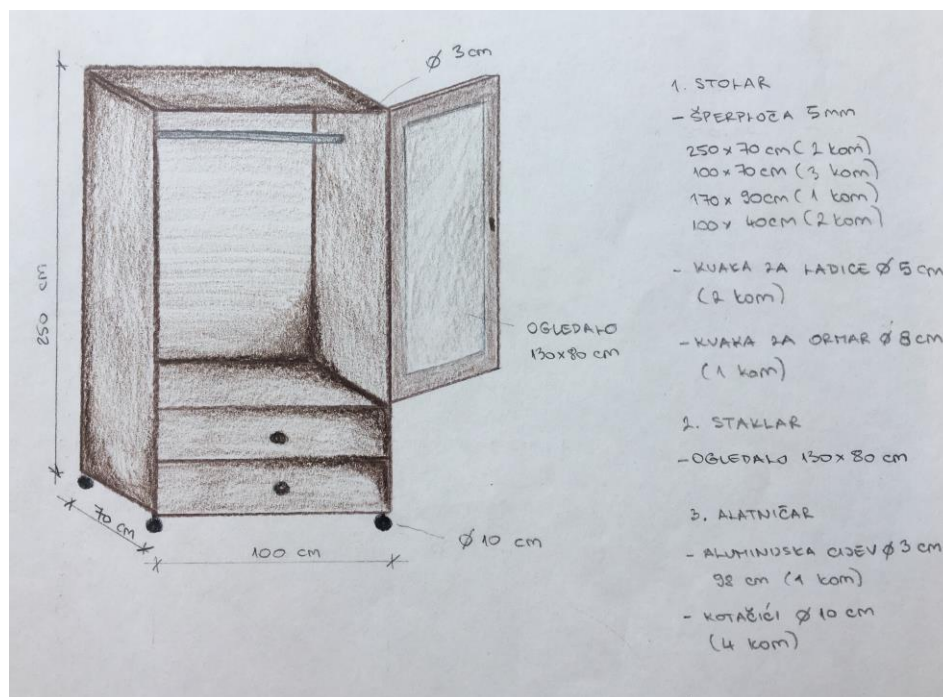 Ø 3 cm
250 cm
70 cm
100 cm
Ø 10 cm
OGLEDALO
130x80 cm
1. STOLAR
- ŠPERPLOČA 5mm
250 x 70 cm (2 kom)
100 x 70 cm (3 kom)
170 x 90cm (1 kom)
100 x 40cm (2 kom)
- KVAKA ZA LADICE Ø 5 cm
(2 kom)
- KVAKA ZA ORMAR Ø 8 cm
(1 kom)
2. STAKLAR
- OGLEDALO 130 x 80 cm
3. ALATNIČAR
- ALUMINIJSKA CIJEV Ø 3 cm
98 cm (1 kom)
- KOTAČIĆI Ø 10 cm
(4 kom)